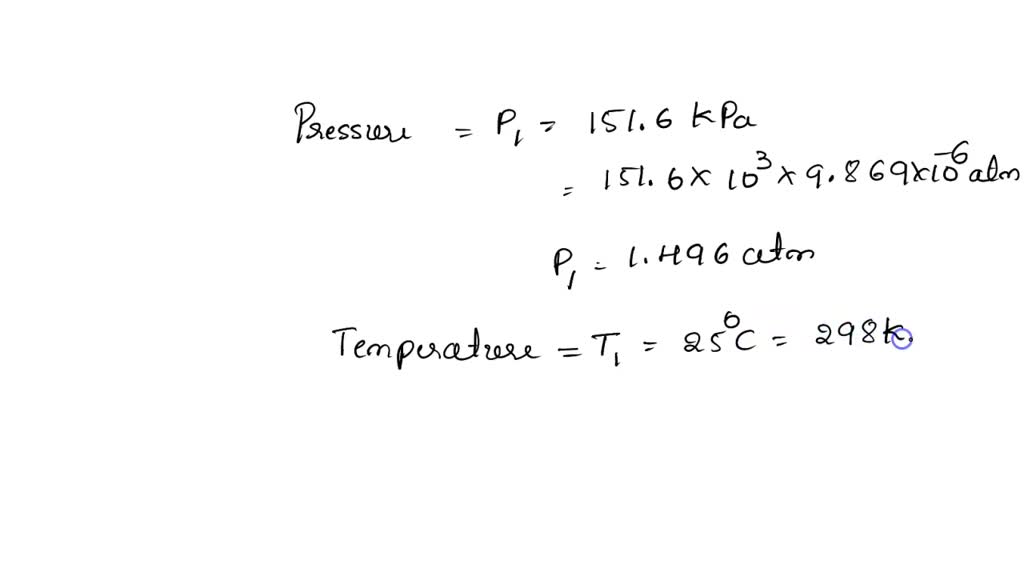 Pressure = P₁ = 151.6 kPa
= 151.6 × 10³ × 9.869×10⁻⁶ atm
P₁ = 1.496 atm
Temperature = T₁ = 25⁰C = 298k.